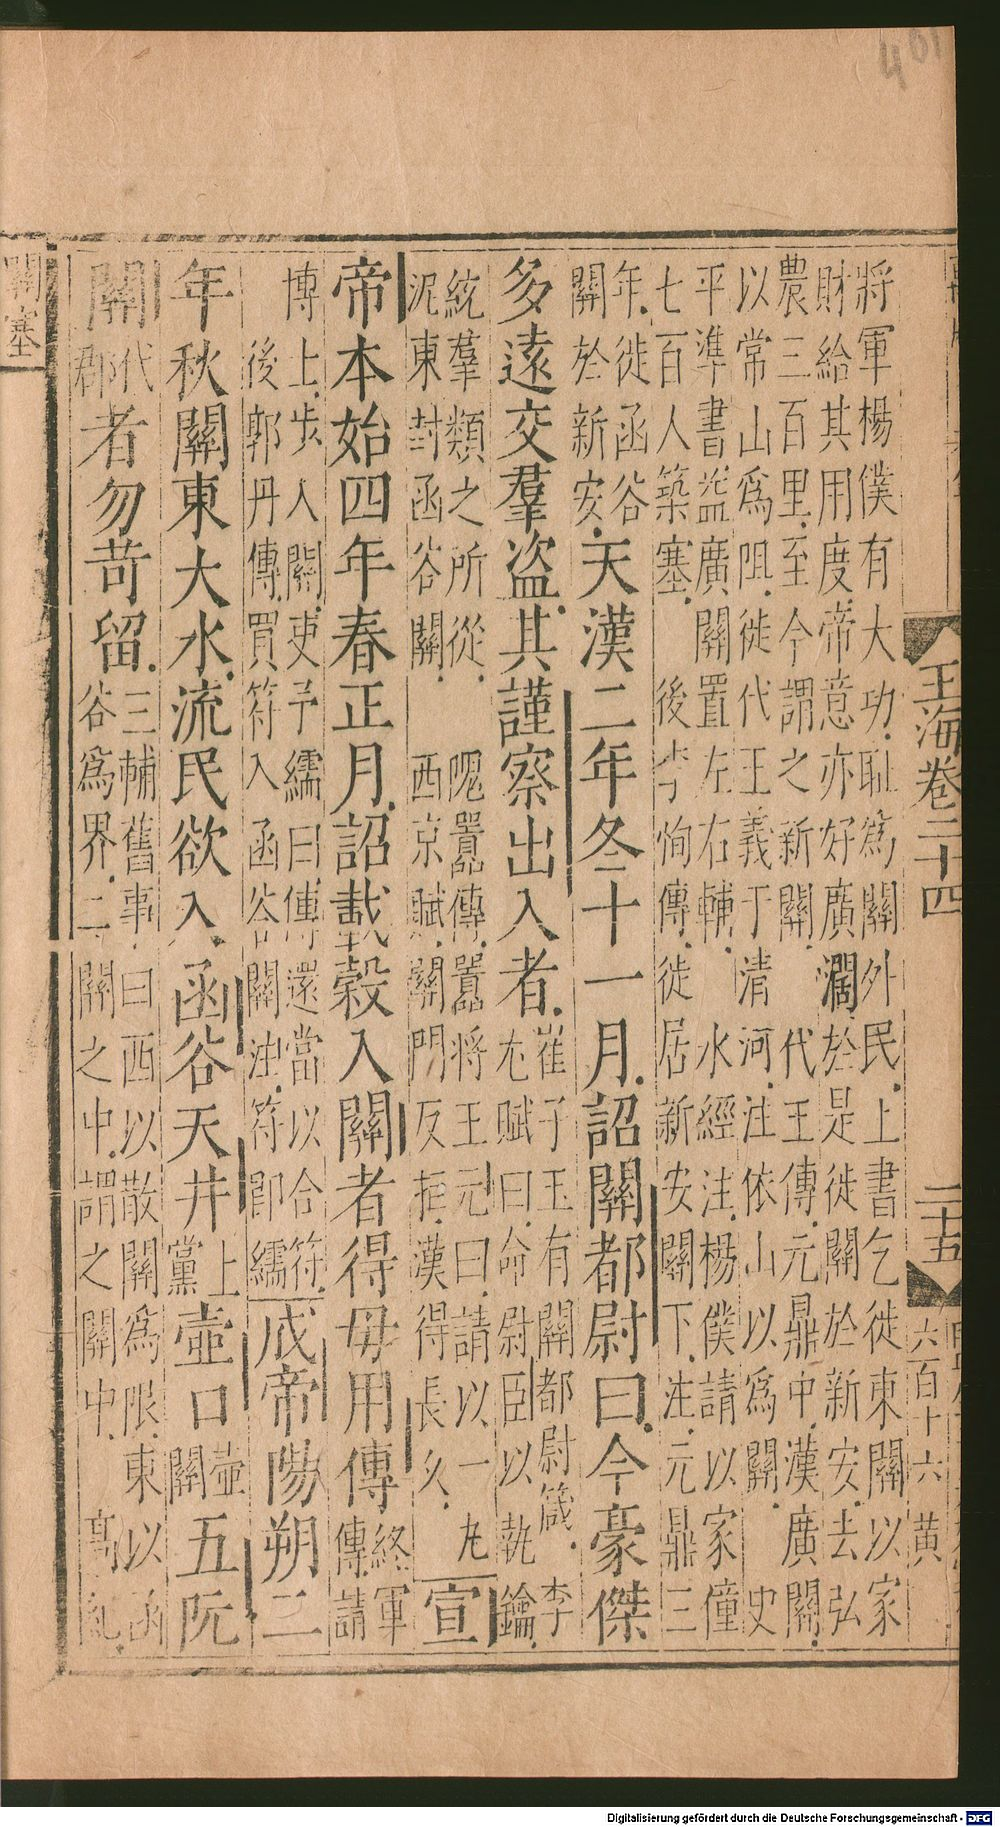 將軍楊僕有大功耻爲關外民上書乞徙東關以家
財給其用度帝意亦好廣濶於是徙關於新安去弘
農三百里至今謂之新關代王傳元鼎中漢廣關
以常山爲阻徙代王義于清河注依山以爲關史
平準書益廣關置左右輔水經注楊僕請以家僮
七百人築塞後李恂傳徙居新安關下注元鼎三
年徙函谷
關於新安天漢二年冬十一月詔關都尉曰今豪傑
多遠交羣盗其謹察出入者崔子玉有關都尉箴李
尤賦曰命尉臣以執鑰
統羣類之所從隗囂傳囂將王元曰請以一丸
泥東封函谷關西京賦關門反拒漢得長久宣
帝本始四年春正月詔載穀入關者得毋用傳終軍
傳請
博上步入關吏予繻曰傳還當以合符
後郭丹傳買符入函谷關注符即繻成帝陽朔二
年秋關東大水流民欲入函谷天井上黨壺口壺關五阮
關代郡者勿苛留三輔舊事曰西以散關爲限東以函
谷爲界二關之中謂之關中高紀
玉海卷二十四
二十五
六百十六
黄
關塞
461
Digitalisierung gefördert durch die Deutsche Forschungsgemeinschaft - DFG